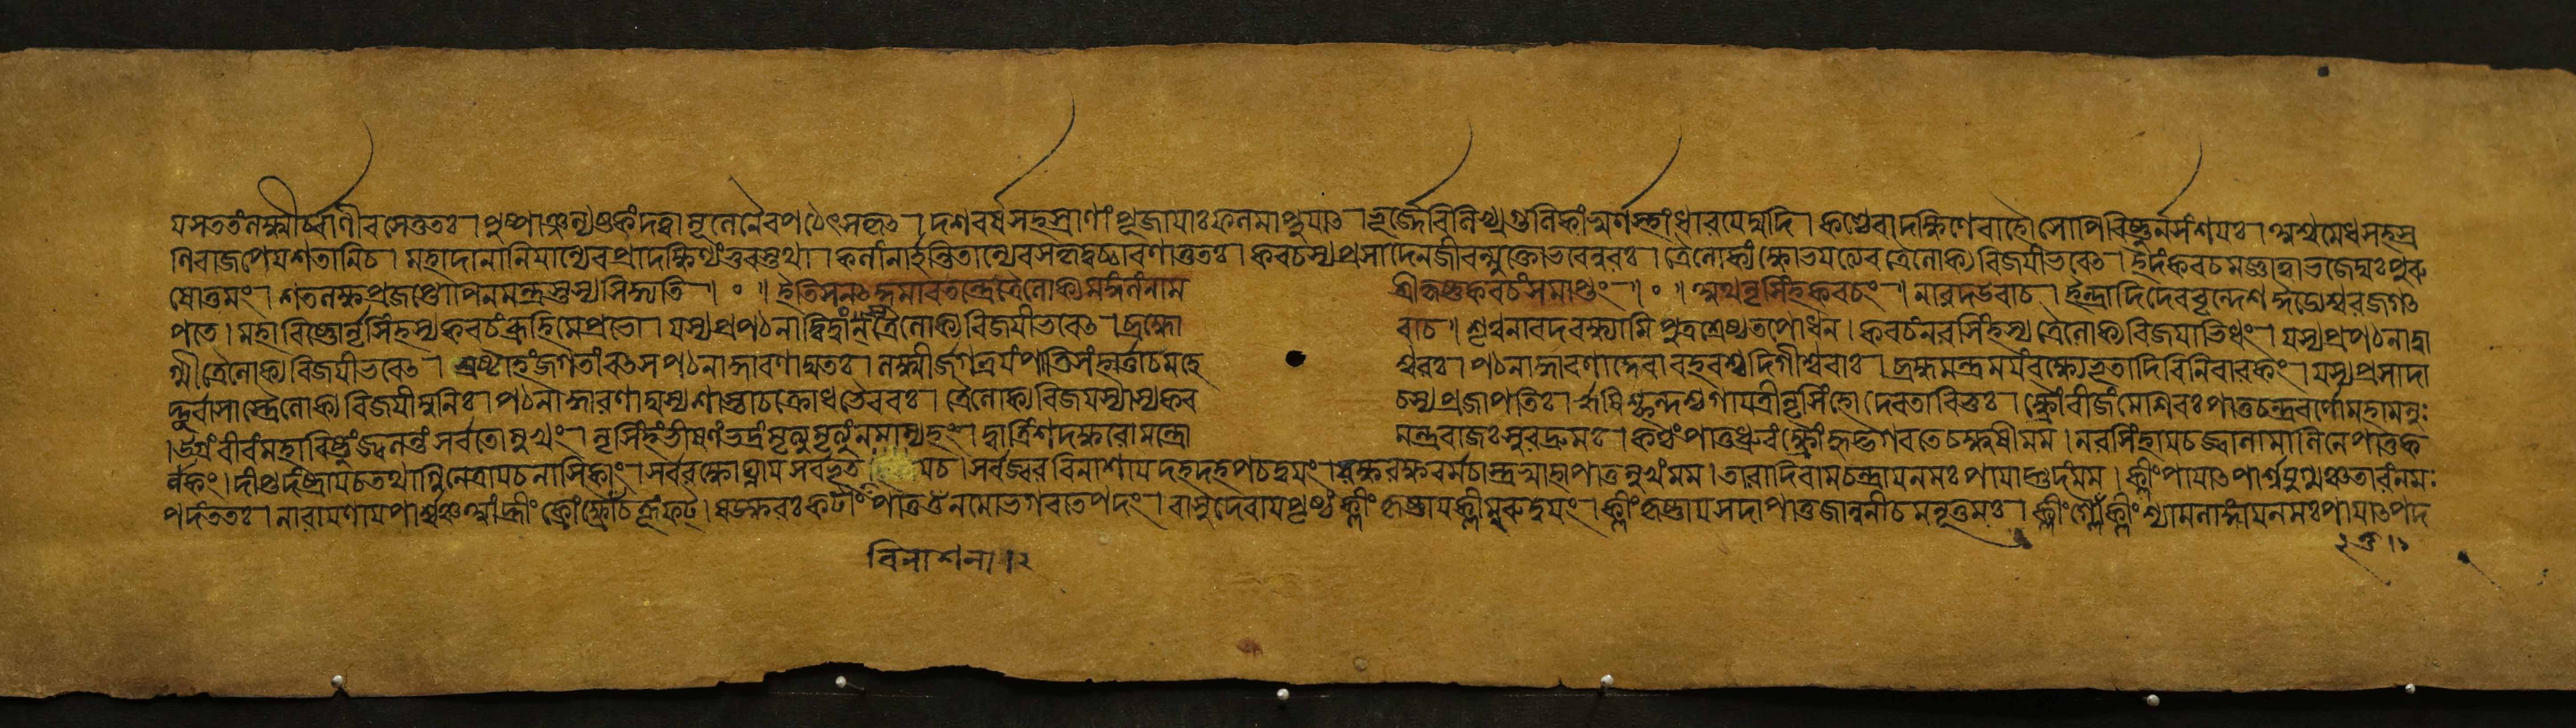 যসততংলক্ষ্মীর্ব্বাণীবসেত্ততঃ । পুষ্পাঞ্জল্যষ্টকংদত্বামূলেনৈবপঠেৎসকৃৎ । দশবর্ষসহস্রাণাংপূজায়াঃফলমাপ্নুয়াৎ । ভূর্জ্জেবিলিখ্যগুলিকাংস্বর্ণস্থাংধারয়েদ্যদি । কণ্ঠেবাদক্ষিণেবাহৌসোপিবিষ্ণুর্নসংশয়ঃ । অশ্বমেধসহস্র
ণিবাজপেয়শতানিচ । মহাদানানিযান্যেবপ্রাদক্ষিণ্যংভুবস্তথা । কলাংনার্হন্তিতান্যেবসকৃদুচ্চারণাত্ততঃ । কবচস্যপ্রসাদেনজীবন্মুক্তোভবেন্নরঃ । ত্রৈলোক্যংক্ষোভয়ত্যেবত্রৈলোক্যবিজয়ীভবেৎ । ইদংকবচমজ্ঞাত্বাভজেদ্যঃপুরু
ষোত্তমং । শতলক্ষপ্রজপ্তোপিনমন্ত্রস্তস্যসিদ্ধ্যতি ॥ ০ ॥ ইতিসনৎকুমারতন্ত্রেত্রৈলোক্যমঙ্গলংনাম শ্রীকৃষ্ণকবচংসমাপ্তং ॥ ০ ॥ অথনৃসিংহকবচং ॥ নারদউবাচ । ইন্দ্রাদিদেববৃন্দেশঈড্যেশ্বরজগৎ
পতে । মহাবিষ্ণোর্নৃসিংহস্যকবচংব্রূহিমেপ্রভো । যস্যপ্রপঠনাদ্বিদ্বাংন্ত্রৈলোক্যবিজয়ীভবেৎ । ব্রহ্মো বাচ ॥ শৃণুনারদবক্ষ্যামিপুত্রশ্রেষ্ঠতপোধন । কবচংনরসিংহস্যত্রৈলোক্যবিজয়াভিধং । যস্যপ্রপঠনাদ্বা
গ্মীত্রৈলোক্যবিজয়ীভবেৎ । স্রষ্টাহংজগতাংবৎসপঠনাদ্ধারণাদ্যতঃ । লক্ষ্মীর্জগত্রয়ংপাতিসংহর্ত্তাচমহে শ্বরঃ । পঠনাদ্ধারণাদ্দেবাবহবশ্চদিগীশ্বরাঃ । ব্রহ্মমন্ত্রময়ংবক্ষ্যেভূতাদিবিনিবারকং । যস্যপ্রসাদা
দ্দুর্বাসাস্ত্রৈলোক্যবিজয়ীমুনিঃ । পঠনাদ্ধারণাদ্যস্যশাস্তাচক্রোধভৈরবঃ । ত্রৈলোক্যবিজয়স্যাস্যকব চস্যপ্রজাপতিঃ । ঋষিশ্ছন্দশ্চগায়ত্রীনৃসিংহোদেবতাবিভুঃ । ক্ষ্রৌংবীজংমেশিরঃপাতুচন্দ্রবর্ণোমহামনুঃ
। উগ্রংবীরংমহাবিষ্ণুংজ্বলন্তংসর্বতোমুখং । নৃসিংহংভীষণংভদ্রংমৃত্যুমৃত্যুংনমাম্যহং । দ্বাত্রিংশদক্ষরোমন্ত্রো মন্ত্ররাজঃসুরদ্রুমঃ । কণ্ঠংপাতুধ্রুবংক্ষ্রৌংহৃদ্ভগবতেচক্ষুষীমম । নরসিংহায়চজ্বালামালিনেপাতুক
র্ণকং । দীপ্তদংষ্ট্রায়চতথাগ্নিনেত্রায়চনাসিকাং । সর্বরক্ষোঘ্নায়সর্বভূত য়চ । সর্বজ্বরবিনাশায়দহদহপচদ্বয়ং । রক্ষরক্ষবর্মচাস্ত্রস্বাহাপাতুমুখংমম । তারাদিরামচন্দ্রায়নমঃপায়াদ্গুদংমম । ক্লীংপায়াৎপার্শ্বযুগ্মঞ্চতারংনমঃ
পদংততঃ । নারায়ণায়পার্শ্বঞ্চআংহ্রীংক্রোংক্ষ্রৌংচহূংফট্ । ষডক্ষরঃকটীংপাতুওঁনমোভগবতেপদং । বাসুদেবায়পৃষ্ঠংক্লীংকৃষ্ণায়ক্লীমুরুদ্বয়ং । ক্লীংকৃষ্ণায়সদাপাতুজানুনীচমনূত্তমঃ । ক্লীংগ্লৌংক্লীংশ্যামলাঙ্গায়নমঃপায়াৎপদ
বিনাশনা । ২